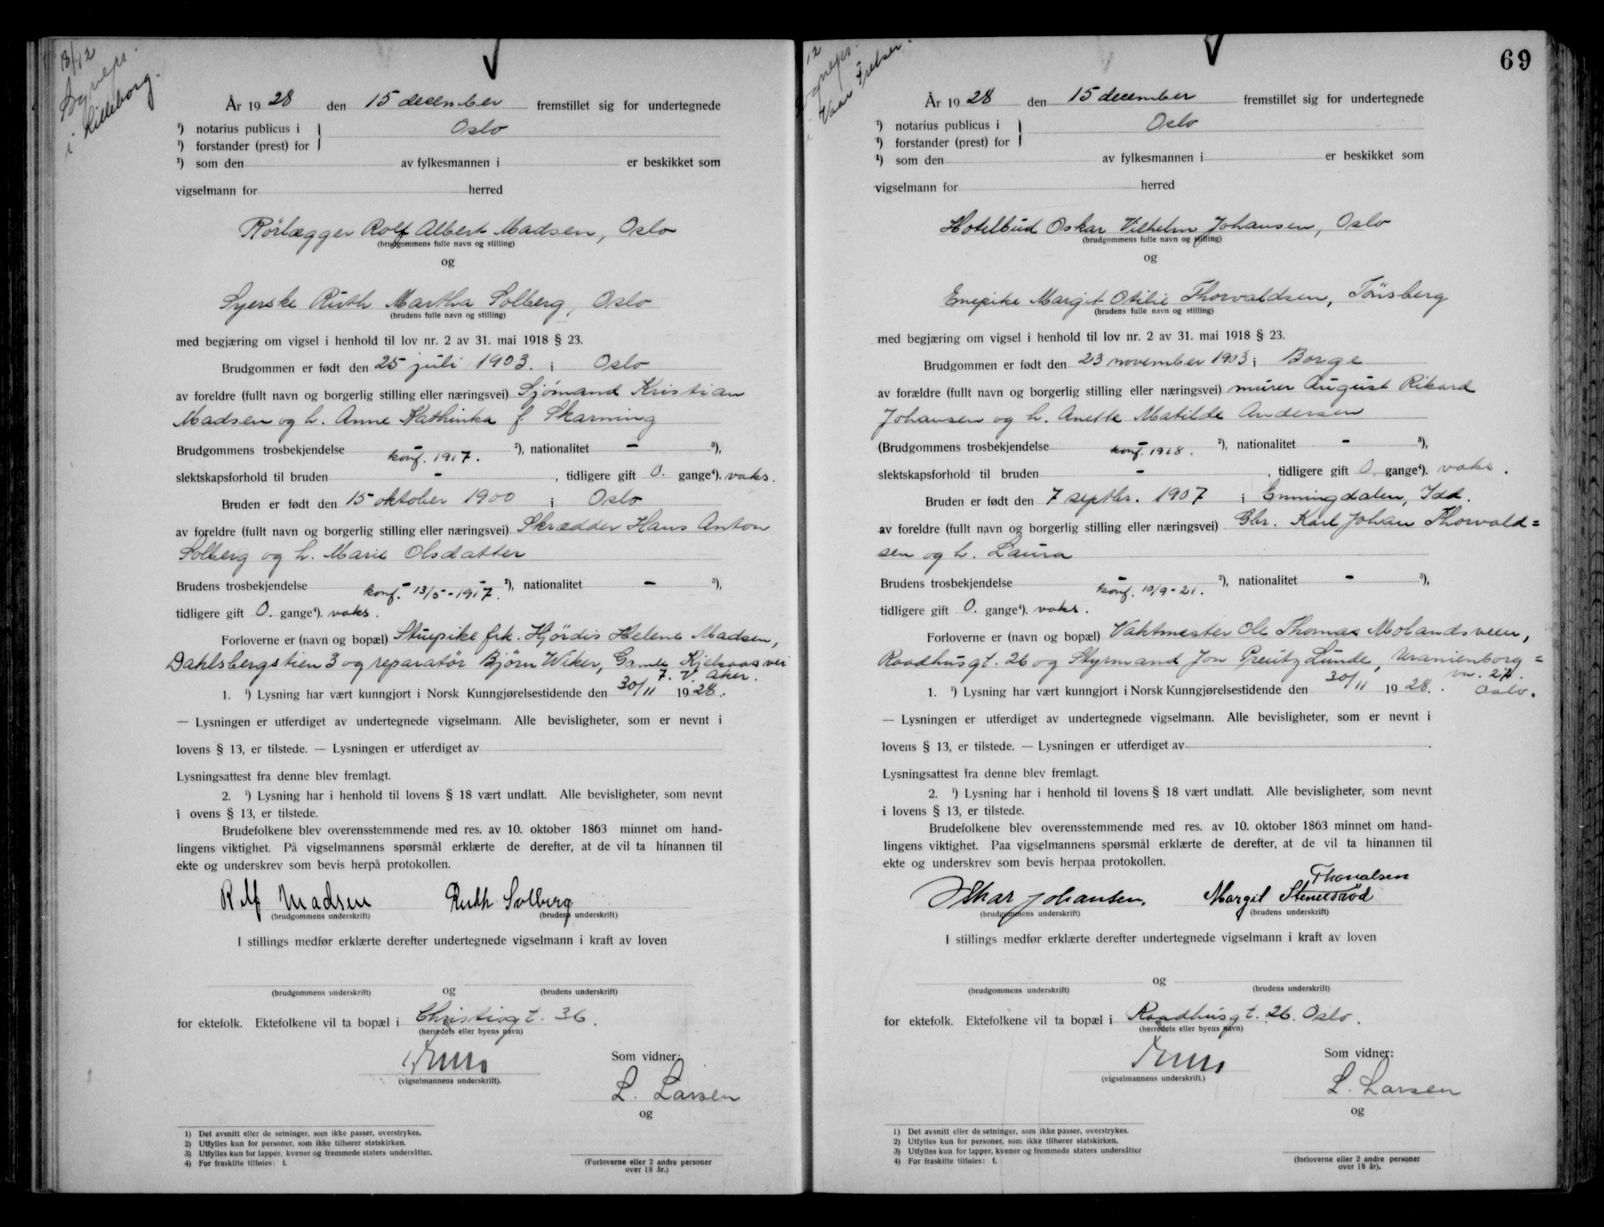 13/12
Sognepr.
i Lilleborg.
År 1928 den 15 december fremstillet sig for undertegnede
¹) notarius publicus i Oslo
¹) forstander (prest) for
¹) som den av fylkesmannen i er beskikket som
vigselmann for herred
Rørlægger Rolf Albert Madsen, Oslo
(brudgommens fulle navn og stilling)
og
Syerske Ruth Martha Solberg, Oslo
(brudens fulle navn og stilling)
med begjæring om vigsel i henhold til lov nr. 2 av 31. mai 1918 § 23.
Brudgommen er født den 25 juli 1903. i Oslo
av foreldre (fullt navn og borgerlig stilling eller næringsvei) Sjømand Kristian
Madsen og h. Anne Kathinka f Skarning
Brudgommens trosbekjendelse - ²), nationalitet - ³),
konf. 1917.
slektskapsforhold til bruden - , tidligere gift 0. gange⁴). vaks.
Bruden er født den 15 oktober 1900 i Oslo
av foreldre (fullt navn og borgerlig stilling eller næringsvei) Skrædder Hans Anton
Solberg og h. Marie Olsdatter
Brudens trosbekjendelse - ²), nationalitet - ³),
konf. 13/5-1917.
tidligere gift 0. gange⁴). vaks.
Forloverne er (navn og bopæl) Stuepike frk. Hjørdis Helene Madsen,
Dahlsbergstien 3 og reparatør Bjørn Wiker, Gamle Kjelsaasvei
7. V. Aker.
1. ¹) Lysning har vært kunngjort i Norsk Kunngjørelsestidende den 30/11 1928.
— Lysningen er utferdiget av undertegnede vigselmann. Alle bevisligheter, som er nevnt i
lovens § 13, er tilstede. — Lysningen er utferdiget av
Lysningsattest fra denne blev fremlagt.
2. ¹) Lysning har i henhold til lovens § 18 vært undlatt. Alle bevisligheter, som nevnt
i ovens § 13, er tilstede.
Brudefolkene blev overensstemmende med res. av 10. oktober 1863 minnet om hand-
lingens viktighet. På vigselmannens spørsmål erklærte de derefter, at de vil ta hinannen til
ekte og underskrev som bevis herpå protokollen.
Rolf Madsen Ruth Solberg
(brudgommens underskrift) (brudens underskrift)
I stillings medfør erklærte derefter undertegnede vigselmann i kraft av loven
og
(brudgommens underskrift) (brudens underskrift)
for ektefolk. Ektefolkene vil ta bopæl i Christiesgt. 36.
(herredets eller byens navn)
(vigselmannens underskrift).
Som vidner:
L. Larsen
og
1) Det avsnitt eller de setninger, som ikke passer, overstrykes.
2) Utfylles kun for personer, som ikke tilhører statskirken.
3) Utfylles kun for lapper, kvener og fremmede staters undersåtter.
4) For fraskilte tilføies: f.
(Forloverne eller 2 andre personer
over 18 år.)
69
12
i Vaar Frelser.
År 1928 den 15 december fremstillet sig for undertegnede
¹) notarius publicus i Oslo
¹) forstander (prest) for
¹) som den av fylkesmannen i er beskikket som
vigselmann for herred
Hotelbud Oskar Vilhelm Johansen, Oslo
(brudgommens fulle navn og stilling)
og
Enepike Margit Otilie Thorvaldsen, Tønsberg
(brudens fulle navn og stilling)
med begjæring om vigsel i henhold til lov nr. 2 av 31. mai 1918 § 23.
Brudgommen er født den 23 november 1903 i Borge
av forældre (fullt navn og borgerlig stilling eller næringsvei) murer August Rikard
Johansen og h. Anette Matilde Andersen
(Brudgommens trosbekjendelse - ²), nationalitet - ³),
konf. 1918.
slektskapsforhold til bruden - , tidligere gift 0. gange⁴). vaks.
Bruden er født den 7 septbr. 1907 i Enningdalen, Idd.
av foreldre (fullt navn og borgerlig stilling eller næringsvei) Gbr. Karl Johan Thorvald=
sen og h. Laura
Brudens trosbekjendelse - ²), nationalitet - ³),
konf. 10/9-21.
tidligere gift 0. gange⁴). vaks.
Forloverne er (navn og bopæl) Vaktmester Ole Thomas Molandsveen,
Raadhusgt. 26 og Styrmand Jon Preutz Lunde, Uranienborg=
vn. 24.
1. ¹) Lysning har vært kunngjort i Norsk Kunngjørelsestidende den 30/11 1928. Oslo.
— Lysningen er utferdiget av undertegnede vigselmann. Alle bevisligheter, som er nevnt i
lovens § 13, er tilstede. — Lysningen er utferdiget av
Lysningsattest fra denne blev fremlagt.
2. ¹) Lysning har i henhold til lovens § 18 vært undlatt. Alle bevisligheter, som nevnt
i lovens § 13, er tilstede.
Brudefolkene blev overensstemmende med res. av 10. oktober 1863 minnet om hand-
lingens viktighet. Paa vigselmannens spørsmål erklærte de derefter, at de vil ta hinannen til
ekte og underskrev som bevis herpaa protokollen.
Thovalsen
Oskar Johansen. Margit Stenersrød
(brudgommens underskrift) (brudens underskrift)
I stillings medfør erklærte derefter undertegnede vigselmann i kraft av loven
og
(brudgommens underskrift) (brudens underskrift)
for ektefolk. Ektefolkene vil ta bopæl i Raadhusgt. 26. Oslo.
(herredets eller byens navn)
(vigselmannens underskrift.)
Som vidner:
L. Larsen
og
1) Det avsnitt eller de setninger, som ikke passer, overstrykes.
2) Utfylles kun for personer, som ikke tilhører statskirken.
3) Utfylles kun for lapper, kvener og fremmede staters undersåtter
4) For fraskilte tilføies: f.
(forloverne eller 2 andre personer
over 18 år).